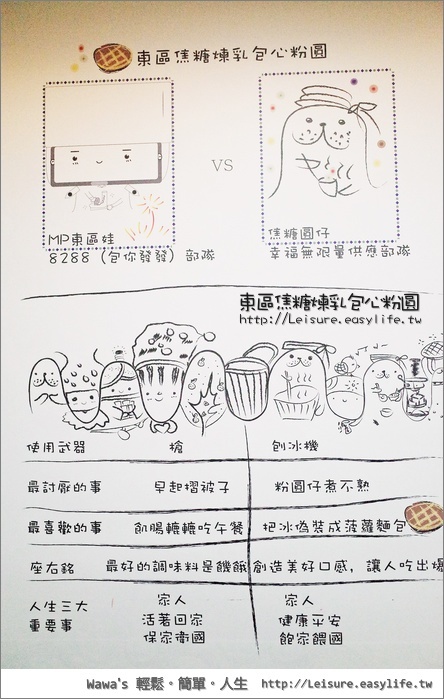 東區焦糖煉乳包心粉圓
VS
MP東區娃
8288（包你發發）部隊
焦糖圓仔
幸福無限量供應部隊
東區焦糖煉乳包心粉圓
http://Leisure.easylife.tw
使用武器 槍 刨冰機
最討厭的事 早起摺被子 粉圓仔煮不熟
最喜歡的事 飢腸轆轆吃午餐 把冰偽裝成菠蘿麵包
座右銘 最好的調味料是饑餓 創造美好口感，讓人吃出場
人生三大重要事 家人 活著回家 保家衛國 家人 健康平安 飽家餵國
Wawa's 輕鬆。簡單。人生 http://Leisure.easylife.tw